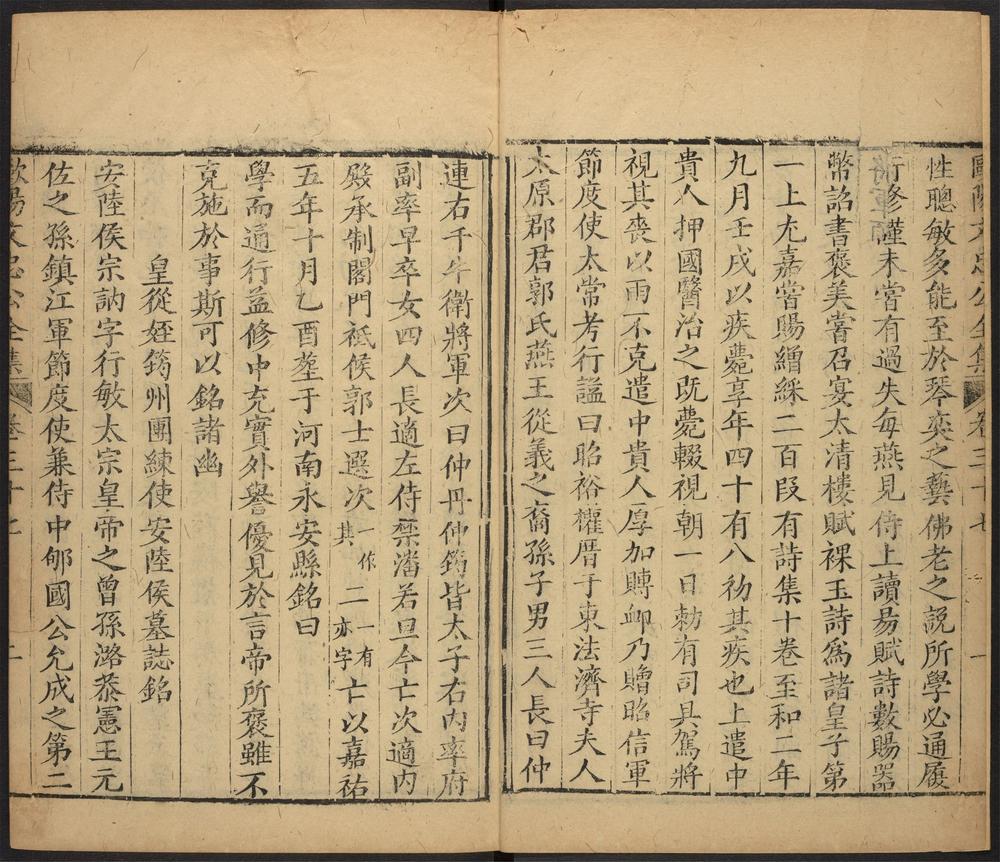 歐陽文忠公全集 卷三十七 一
性聰敏多能至於琴奕之藝佛老之說所學必通履
行修謹未嘗有過失每燕見侍上讀易賦詩數賜器
幣詔書褒美嘗召宴太清樓賦裸玉詩爲諸皇子第
一上尤嘉嘗賜繒綵二百段有詩集十卷至和二年
九月壬戌以疾薨享年四十有八初其疾也上遣中
貴人押國醫治之旣薨輟視朝一日勅有司具駕將
視其喪以雨不克遣中貴人厚加賻卹乃贈昭信軍
節度使太常考行諡曰昭裕權厝于東法濟寺夫人
太原郡君郭氏燕王從義之裔孫子男三人長曰仲
連右千牛衛將軍次曰仲丹仲筠皆太子右內率府
副率早卒女四人長適左侍禁潘若旦今亡次適內
殿承制閤門祗候郭士選次一作其二一有亦字亡以嘉祐
五年十月乙酉塟于河南永安縣銘曰
學而通行益修中充實外譽優見於言帝所褒雖不
克施於事斯可以銘諸幽
皇從姪筠州團練使安陸侯墓誌銘
安陸侯宗訥字行敏太宗皇帝之曾孫潞恭憲王元
佐之孫鎮江軍節度使兼侍中郇國公允成之第二
歐陽文忠公全集 卷三十七